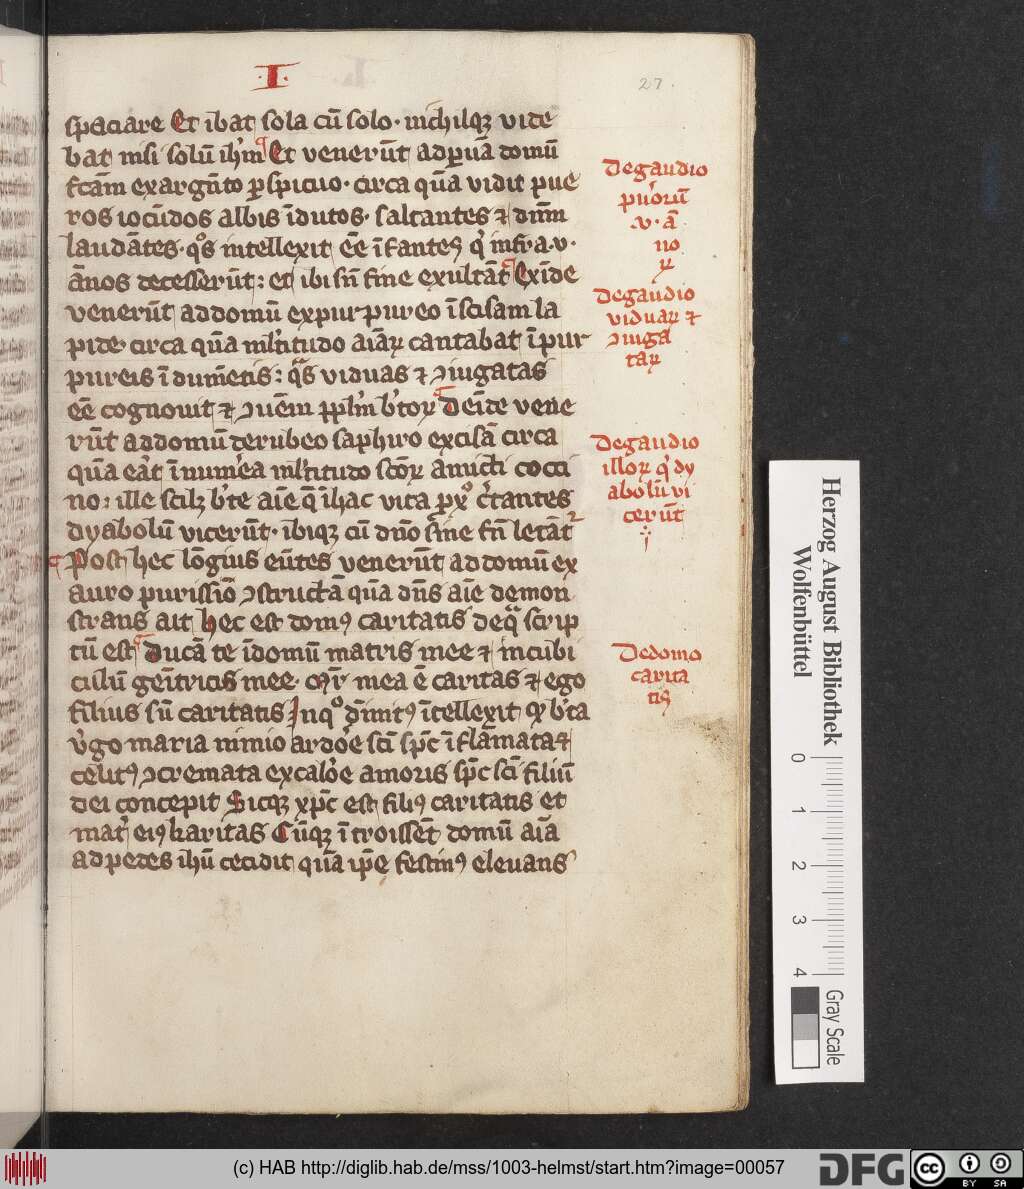 ·I·
27.
spaciare Et ibat sola cū solo · nichilqꝫ vide
bat nisi solū ihm̄ Et venerūt ad ꝑuā domū
fcām ex argēto ꝑspicuo · circa quā vidit pue
ros iocūdos albis īdutos · saltantes ⁊ dnm̄
laudātes · q̊s intellexit eē īfantes q' infra · v ·
ānos decesserūt : et ibi sn̄ fine exultāt Exīde
venerūt ad domū ex purpureo īscisam la
pide · circa quā ml'titudo aīaꝝ cantabat ī pur
pureis īdumētis : qͣs viduas ⁊ ꝯiugatas
eē cognouit ⁊ ꝯuēm pp̄lm b'toꝝ Deīde vene
rūt ad domū de rubeo saphiro excisā circa
quā eāt īnum'ea ml'titudo sctōꝝ amicti cocci
no : ille scilꝫ b'te aīe q̄ ī hac vita ꝓ xp̊ c'tantes
dyabolū vicerūt · ibiqꝫ cū dn̄o sine fn̄ letāt᷑
Post hec lōgius eūtes venerūt ad domū ex
auro purissīo ꝯstructā quā dn̄s aīe demon
strans ait hec est domꝰ caritatis de qͣ scrip
tū est Ducā te ī domū matris mee ⁊ in cubi
culū genītricis mee · m̄r mea ē caritas ⁊ ego
filius sū caritatis In qͦ dīmitꝰ ītellexit qꝫ b'ta
v'go maria nimio ardoe sc̄i sp̄c īflāmata ⁊
celitꝰ ꝯcremata ex caloe amoris sp̄c sc̄i filiū
dei concepit Sicqꝫ xp̄c est filiꝰ caritatis et
mat' eiꝰ karitas Cūqꝫ ītroissēt domū aīa
ad pedes ihū cecidit quā ip̄e festinꝰ elevans
De gaudio
puorū
· v · ā
no
ꝝ
De gaudio
viduaꝝ ⁊
ꝯiuga
taꝝ
De gaudio
illoꝝ q' dy
abolū vi
cerūt
De domo
carita
tis
Herzog August Bibliothek
Wolfenbüttel
0 1 2 3 4
Gray Scale
(c) HAB http://diglib.hab.de/mss/1003-helmst/start.htm?image=00057
DFG
cc BY SA